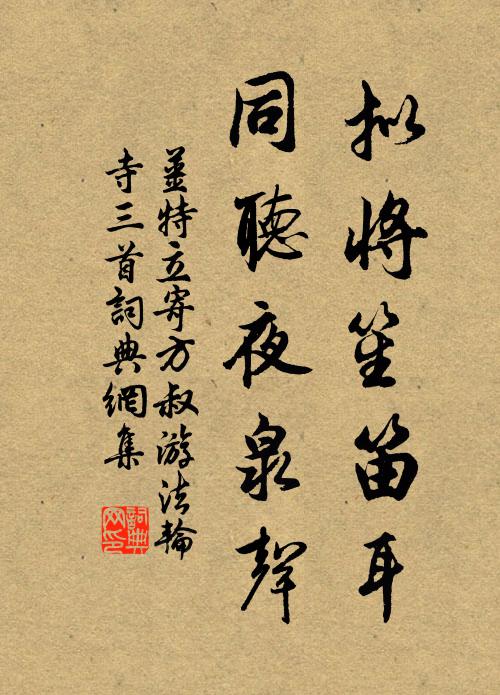 拟将笙笛耳
同聽夜泉聲
姜特立寄方叔游法輪
寺三首詞典網集
詞典網印